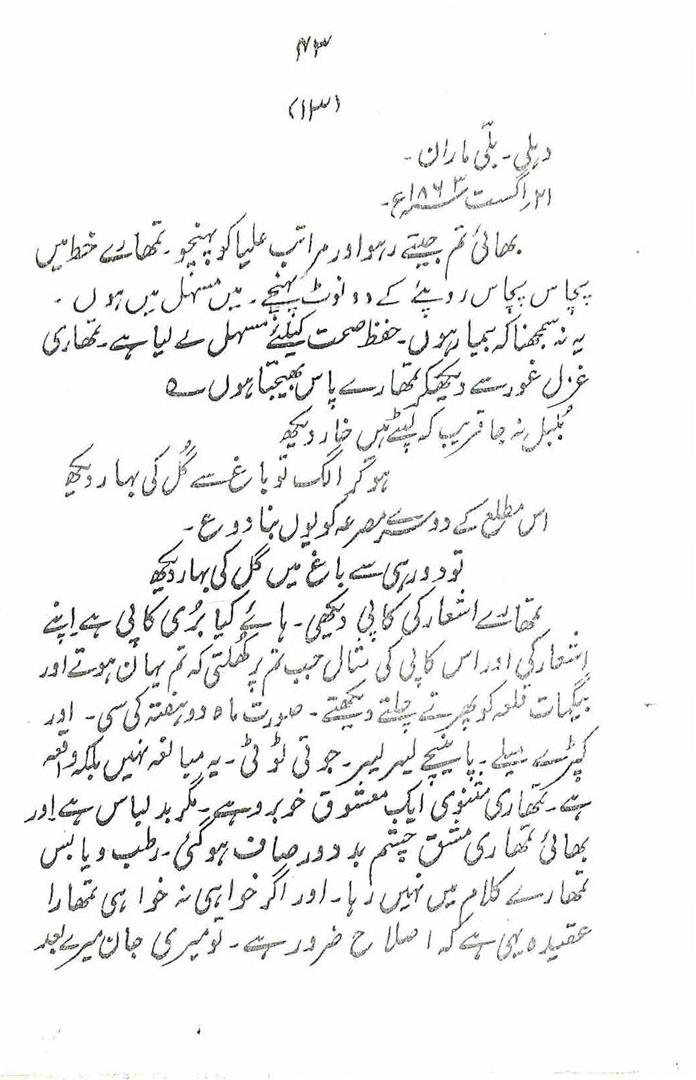 ۷۳
(۱۳)
دہلی۔ بلّی ماران۔
۲۱؍اگست ۱۸۶۳ء۔
بھائی تم جیتے رہو اور مراتب علیا کو پہنچو۔ تمھارے خط میں
پچاس پچاس روپئے کے دو نوٹ پہنچے۔ میں مسہل میں ہوں۔
یہ نہ سمجھنا کہ بیمار ہوں۔ حفظ صحت کیلئے مسہل لے لیا ہے۔ تمھاری
غزل غور سے دیکھکر تمھارے پاس بھیجتا ہوں ؎
بُلبل نہ جا قریب کہ لپٹے ہیں خار دیکھ
ہو کر الگ تو باغ سے گُل کی بہار دیکھ
اس مطلع کے دوسرے مصرعہ کو یوں بنا دو ع۔
تو دور ہی سے باغ میں گل کی بہار دیکھ
تمھارے اشعار کی کاپی دیکھی۔ ہائے کیا بُری کاپی ہے اپنے
اشعار کی اور اس کاپی کی مثال جب تم پر کھُلتی کہ تم یہاں ہوتے اور
بیگمات قلعہ کو پھرتے چلتے دیکھتے۔ صورت ماہ دو ہفتہ کی سی۔ اور
کپڑے میلے۔ پائینچے لیر لیر۔ جوتی ٹوٹی۔ یہ مبالغہ نہیں بلکہ واقعہ
ہے۔ تمھاری مثنوی ایک معشوق خوبرو ہے۔ مگر بد لباس ہے اور
بھائی تمھاری مشق چشم بد دور صاف ہو گئی۔ رطب و یابس
تمھارے کلام میں نہیں رہا۔ اور اگر خواہی نہ خواہی تمھارا
عقیدہ یہی ہے کہ اصلاح ضرور ہے۔ تو میری جان میرے بعد